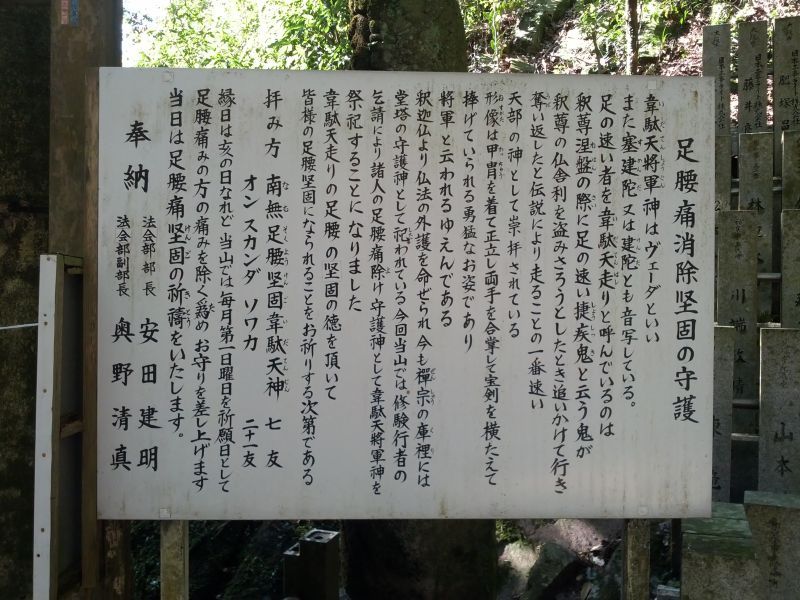 足腰痛消除坚固の守護
韋駄天將軍神はヴェーダといい
また塞建陀又は建陀とも音写している。
足の速い者を韋駄天走りと呼んでいるのは
釈尊涅盤の際に足の速い捷疾鬼と云う鬼が
釈尊の仏舎利を盗みさろうとしたとき追いかけて行き
奪い返したと伝説により走ることの一番速い
天部の神として崇拝されている
形像は甲冑を着て正立し両手を合掌して宝剣を横たえて
捧げていられる勇猛なお姿であり
將軍と云われるゆえんである
釈迦仏より仏法の外護を命ぜられ今も禪宗の庫裡には
堂塔の守護神として祀われている今回当山では修験行者の
乞請により諸人の足腰痛除け守護神として韋駄天將軍神を
祭祀することになりました
韋駄天走りの足腰の坚固の徳を頂いて
皆様の足腰坚固になられることをお祈りする次第である
拝み方 南無足腰坚固韋駄天神 七友
オンスカンダ ソワカ 二十一友
縁日は亥の日なれど当山では毎月第一日曜日を祈願日として
足腰痛みの方の痛みを除く爲めお守りを差し上げます
当日は足腰痛坚固の祈禱をいたします。
奉納
法会部部長 安田建明
法会部副部長 奥野清真
山本